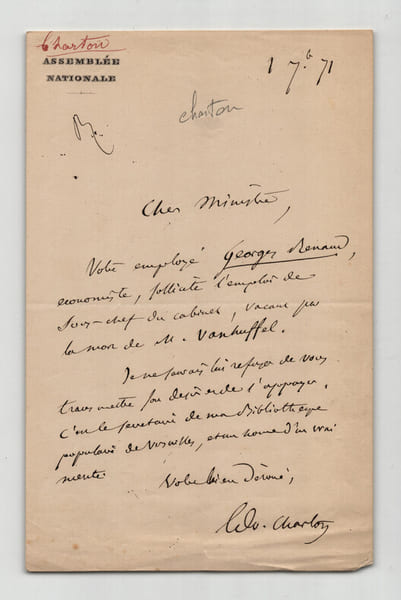 Charton
ASSEMBLÉE
NATIONALE
1 7.b 71
charton
Cher Ministre,
Votre employé Georges Renaud,
économiste, sollicite l'emploi de
sous-chef du cabinet, vacant par
la mort de M. Vanhuffel.
Je ne saurais lui refuser de vous
transmettre son désir et de l'appuyer.
C'est le secrétaire de ma Bibliothèque
populaire de Versailles, et un homme d'un vrai
mérite.
Votre bien dévoué,
Edo. Charton